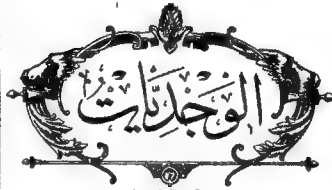 الوَجْدِيَّاتُ